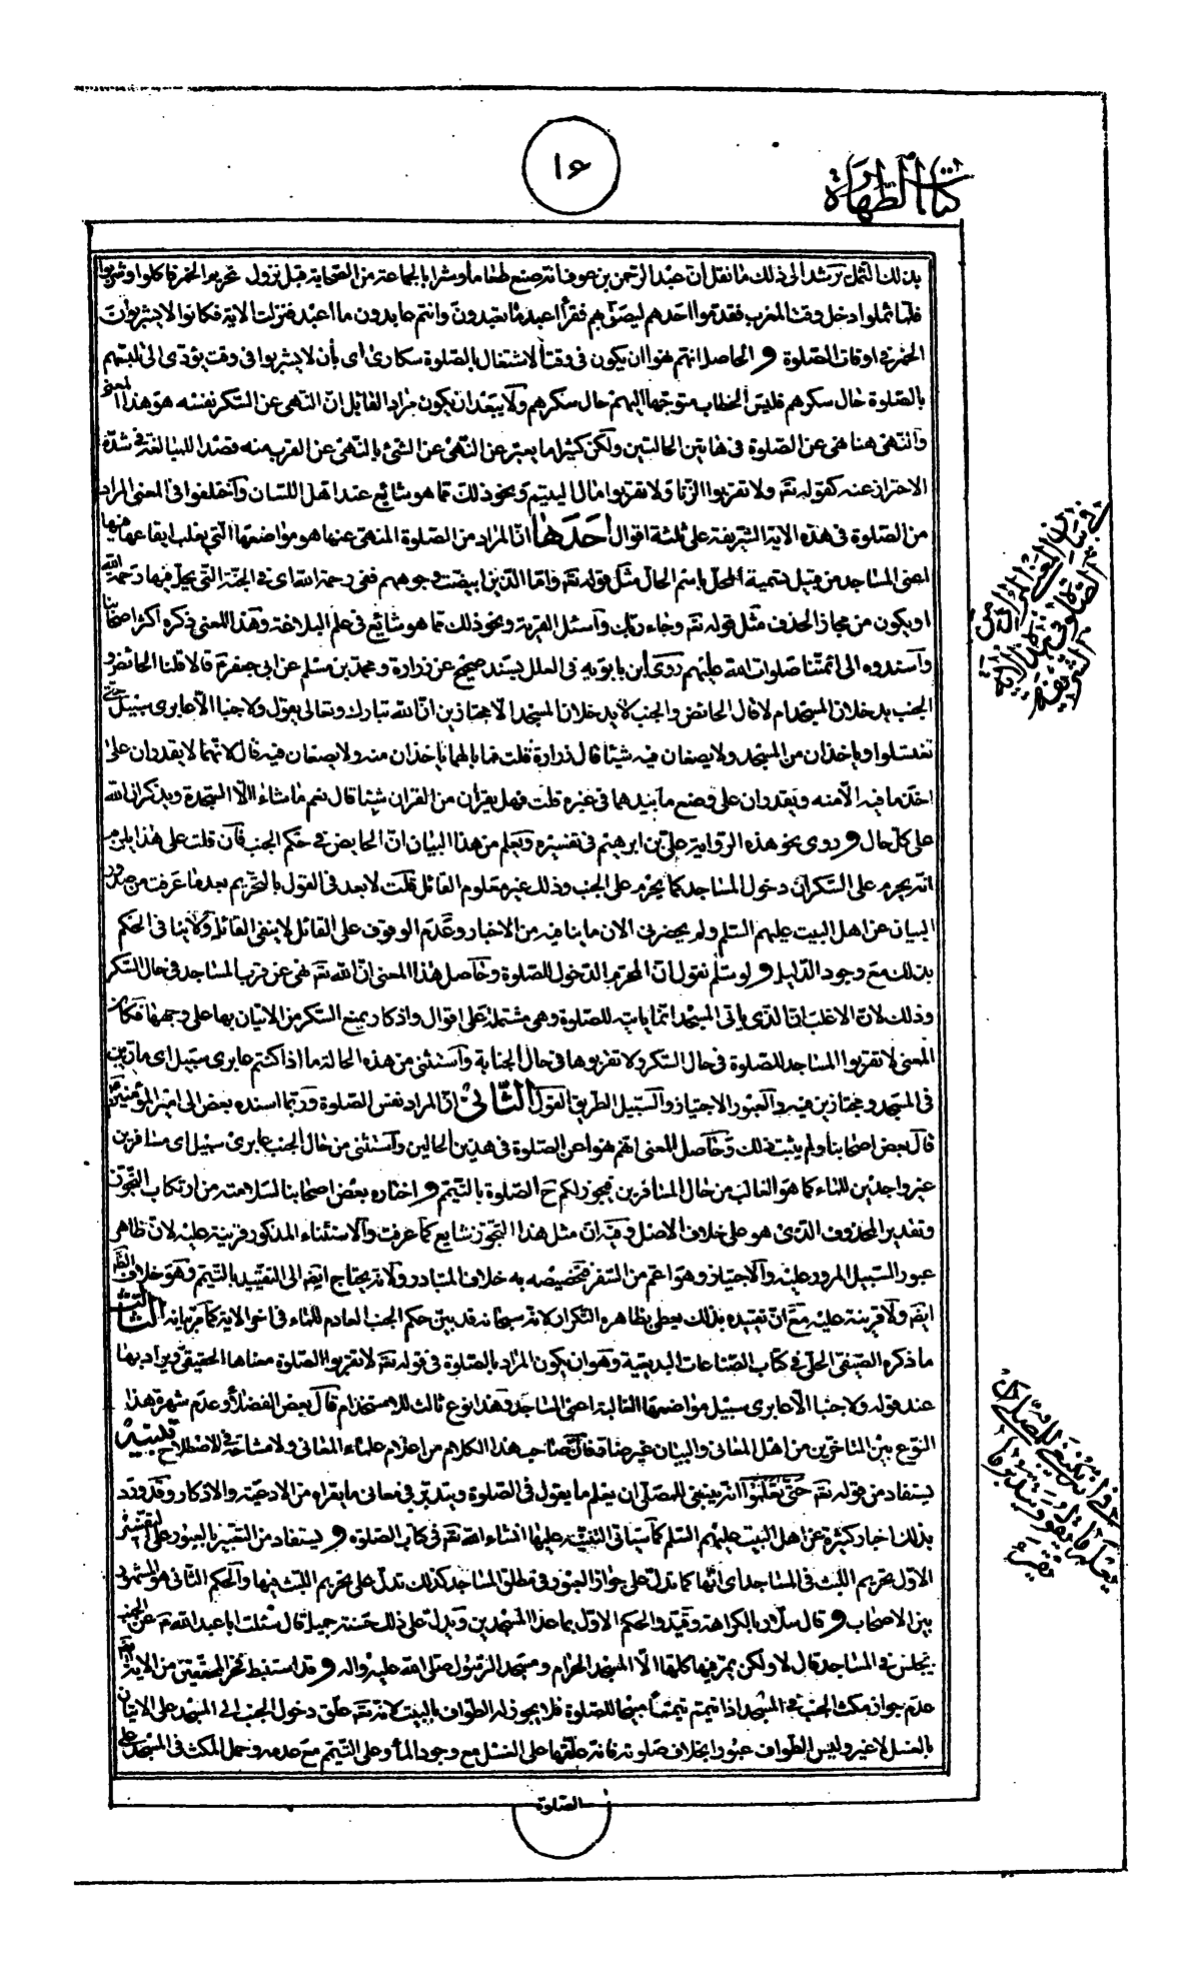 كتاب الطهارة
١۶
بذلك الثمل يرشد الى ذلك ما نقل ان عبد الرحمن بن عوف انه صنع طعاما وشرابا لجماعة من الصحابة قبل نزول تحريم الخمر فاكلوا وشربوا
فلما ثملوا دخل وقت المغرب فقدموا احدهم ليصلى بهم فقرأ اعبد ما تعبدون وانتم عابدون ما اعبد فنزلت الاية فكانوا لا يشربون
الخمر فى اوقات الصلوة و الحاصل انهم نهوا ان يكون فى وقت الاشتغال بالصلوة سكارى اى بأن لا يشربوا فى وقت يؤدى الى تلبسهم
بالصلوة حال سكرهم فليس الخطاب متوجها اليهم حال سكرهم ولا يبعد ان يكون مراد القائل ان النهى عن السكر نفسه هو هذا المعنى
والنهى هنا نهى عن الصلوة فى هاتين الحالتين ولكن كثيرا ما يعبر عن النهى عن الشئ بالنهى عن القرب منه قصدا للمبالغة فى شدة
الاحتراز عنه كقوله تع ولا تقربوا الزنا ولا تقربوا مال اليتيم ونحو ذلك مما هو شائع عند اهل اللسان واختلفوا فى المعنى المراد
من الصلوة فى هذه الاية الشريفة على ثلثة اقوال احدها ان المراد من الصلوة المنهى عنها هو مواضعها التى يغلب ايقاعها فيها
اعنى المساجد من قبيل تسمية المحل باسم الحال مثل قوله تع واما الذين ابيضت وجوههم ففى رحمة الله اى فى الجنة التى يحل فيها رحمة الله
او يكون من مجاز الحذف مثل قوله تع وجاء ربك واسئل القرية ونحو ذلك مما هو شائع فى علم البلاغة وهذا المعنى ذكره اكثر اصحابنا
واسندوه الى ائمتنا صلوات الله عليهم روى ابن بابويه فى العلل بسند صحيح عن زرارة ومحمد بن مسلم عن ابى جعفر ع قالا قلنا الحائض و
الجنب يدخلان المسجد ام لا قال الحائض والجنب لا يدخلان المسجد الا مجتازين ان الله تبارك وتعالى يقول ولا جنبا الا عابرى سبيل حتى
تغتسلوا وياخذان من المسجد ولا يضعان فيه شيئا قال زرارة قلت فما بالهما ياخذان منه ولا يضعان فيه قال لانهما لا يقدران على
اخذ ما فيه الا منه ويقدران على وضع ما بيدهما فى غيره قلت فهل يقرأن من القران شيئا قال نعم ما شاءا الا السجدة ويذكران الله
على كل حال و روى نحو هذه الرواية على بن ابرهيم فى تفسيره ويعلم من هذا البيان ان الحايض فى حكم الجنب فان قلت على هذا يلزم
انه يحرم على السكران دخول المساجد كما يحرم على الجنب وذلك غير معلوم القائل قلت لا بعد فى القول بالتحريم بعد ما عرفت من صدور
البيان عن اهل البيت عليهم السلم ولم يحضرنى الان ما ينافيه من الاخبار وعدم الوقوف على القائل لا ينفى القائل ولاينافى الحكم
بذلك مع وجود الدليل و لو سلم نقول ان المحرم الدخول للصلوة وحاصل هذا المعنى ان الله تع نهى عن قرب المساجد فى حال السكر
وذلك لان الاغلب ان الذى ياتى المسجد انما ياتيه للصلوة وهى مشتملة على اقوال واذكار يمنع السكر من الاتيان بها على وجهها فكان
المعنى لا تقربوا المساجد للصلوة فى حال السكر ولا تقربوها فى حال الجنابة واستثنى من هذه الحالة ما اذا كنتم عابرى سبيل اى مارين
فى المسجد ومجتازين فيه والعبور الاجتياز والسبيل الطريق القول الثانى ان المراد نفس الصلوة وربما اسنده بعض الى امير المؤمنين ع
قال بعض اصحابنا ولم يثبت ذلك وحاصل المعنى انهم نهوا عن الصلوة فى هذين الحالين واستثنى من حال الجنب عابرى سبيل اى مسافرين
غير واجدين للماء كما هو الغالب من حال المسافرين فيجوز لكم ح الصلوة بالتيمم و اختاره بعض اصحابنا لسلامته من ارتكاب التجوز
وتقدير المحذوف الذى هو على خلاف الاصل وفيه ان مثل هذا التجوز شايع كما عرفت والاستثناء المذكور قرينة عليه لان ظاهر
عبور السبيل المرور عليه والاجتياز وهو اعم من السفر فتخصيصه به خلاف المتبادر ولانه يحتاج ايضا الى التقييد بالتيمم وهو خلاف الظ
ايضا ولا قرينة عليه مع ان تقييده بذلك يعطى بظاهره التكرار لانه سبحانه قد بين حكم الجنب العادم للماء فى اخر الاية كما مر بيانه الثالث
ما ذكره الصفى الحلى فى كتاب الصناعات البديعية وهو ان يكون المراد بالصلوة فى قوله تع لا تقربوا الصلوة معناها الحقيقى ويراد بها
عند قوله ولا جنبا الا عابرى سبيل مواضعها الغالبة اعنى المساجد وهذا نوع ثالث للاستخدام قال بعض الفضلاء وعدم شهرة هذا
النوع بين المتاخرين من اهل المعانى والبيان غير ضار فان صاحب هذا الكلام من اعلام علماء المعانى ولا مشاحة فى الاصطلاح تنبيه
يستفاد من قوله تع حتى تعلموا انه ينبغى للمصلى ان يعلم ما يقول فى الصلوة ويتدبر فى معانى ما يقراه من الادعية والاذكار وقد ورد
بذلك اخبار كثيرة عن اهل البيت عليهم السلم كما سياتى التنبيه عليها انشاء الله تع فى كتاب الصلوة و يستفاد من التعبير بالعبور على التفسير
الاول تحريم اللبث فى المساجد اى انها كما تدل على جواز العبور فى مطلق المساجد كذلك تدل على تحريم اللبث فيها والحكم الثانى هو المشهور
بين الاصحاب و قال سلار بالكراهة وقيدوا الحكم الاول بما عدا المسجدين ويدل على ذلك حسنة جميل قال سئلت ابا عبد الله ع عن الجنب
يجلس فى المساجد قال لا ولكن يمر فيها كلها الا المسجد الحرام ومسجد الرسول صلى الله عليه واله و قد استنبط فخر المحققين من الاية
عدم جواز مكث الجنب فى المسجد اذا تيمم تيمما مبيحا للصلوة فلا يجوز له الطواف بالبيت لانه تع علق دخول الجنب الى المسجد على الاتيان
بالغسل لا غير وليس الطواف عبورا بخلاف صلوته فانه علقها على الغسل مع وجود الماء وعلى التيمم مع عدمه وحمل المكث فى المسجد على
الصلوة
فى بيان المعنى المراد من
الصلوة فى هذه الاية
الشريفة
فى انه ينبغى للمصلى ان
يعلم ما يقول ويتدبر ما
يقرء